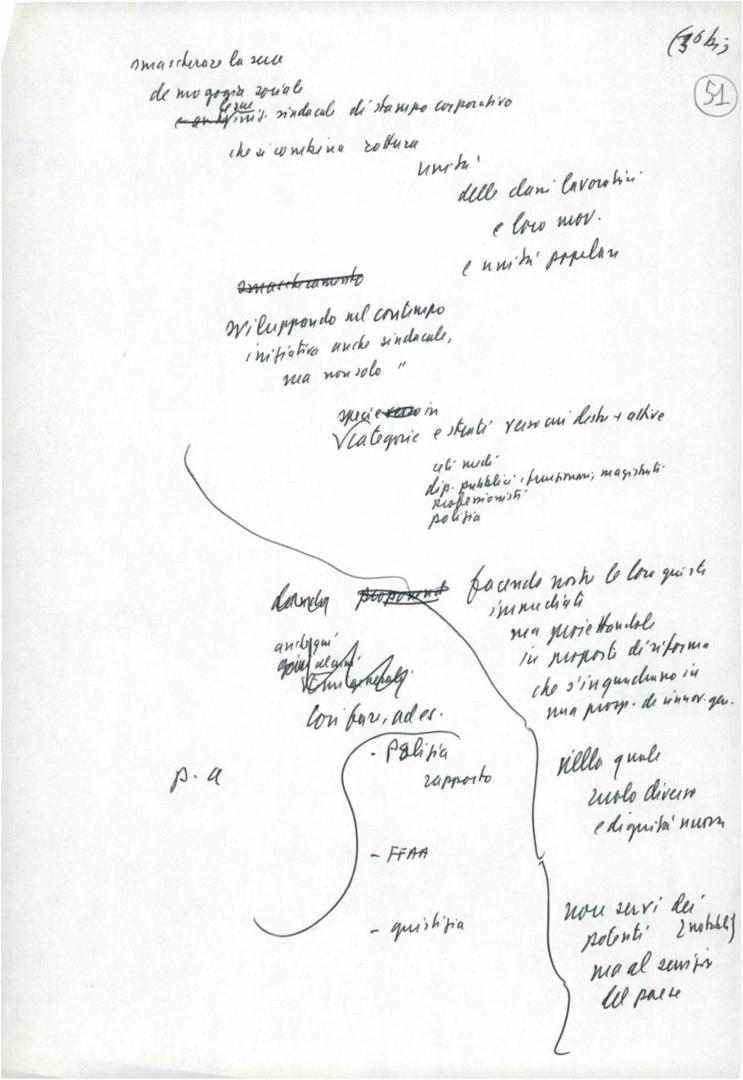 (36 bis
51
smascherare la sua
demagogia sociale
e sindacale di stampo corporativo
che si combina rottura
unità
delle classi lavoratrici
e loro mov.
e unità popolare
smascheramento
sviluppando nel contempo
iniziativa anche sindacale,
ma non solo "
specie verso in
categorie e strati verso cui destra + attive
ceti medi
dip. pubblici, funzionari, magistrati
professionisti
polizia
proponend
facendo nostre le loro
immediati
ma proiettandole
in proposte di riforma
che s'inquadrino in
una prosp. di rinnov. gen.
anche qui
temi generali
Così fare, ad es.
- Polizia
rapporto
p. a
- FFAA
- giustizia
nella quale
ruolo diverso
e dignità nuova
non servi dei
potenti [notabili]
ma al servizio
del paese